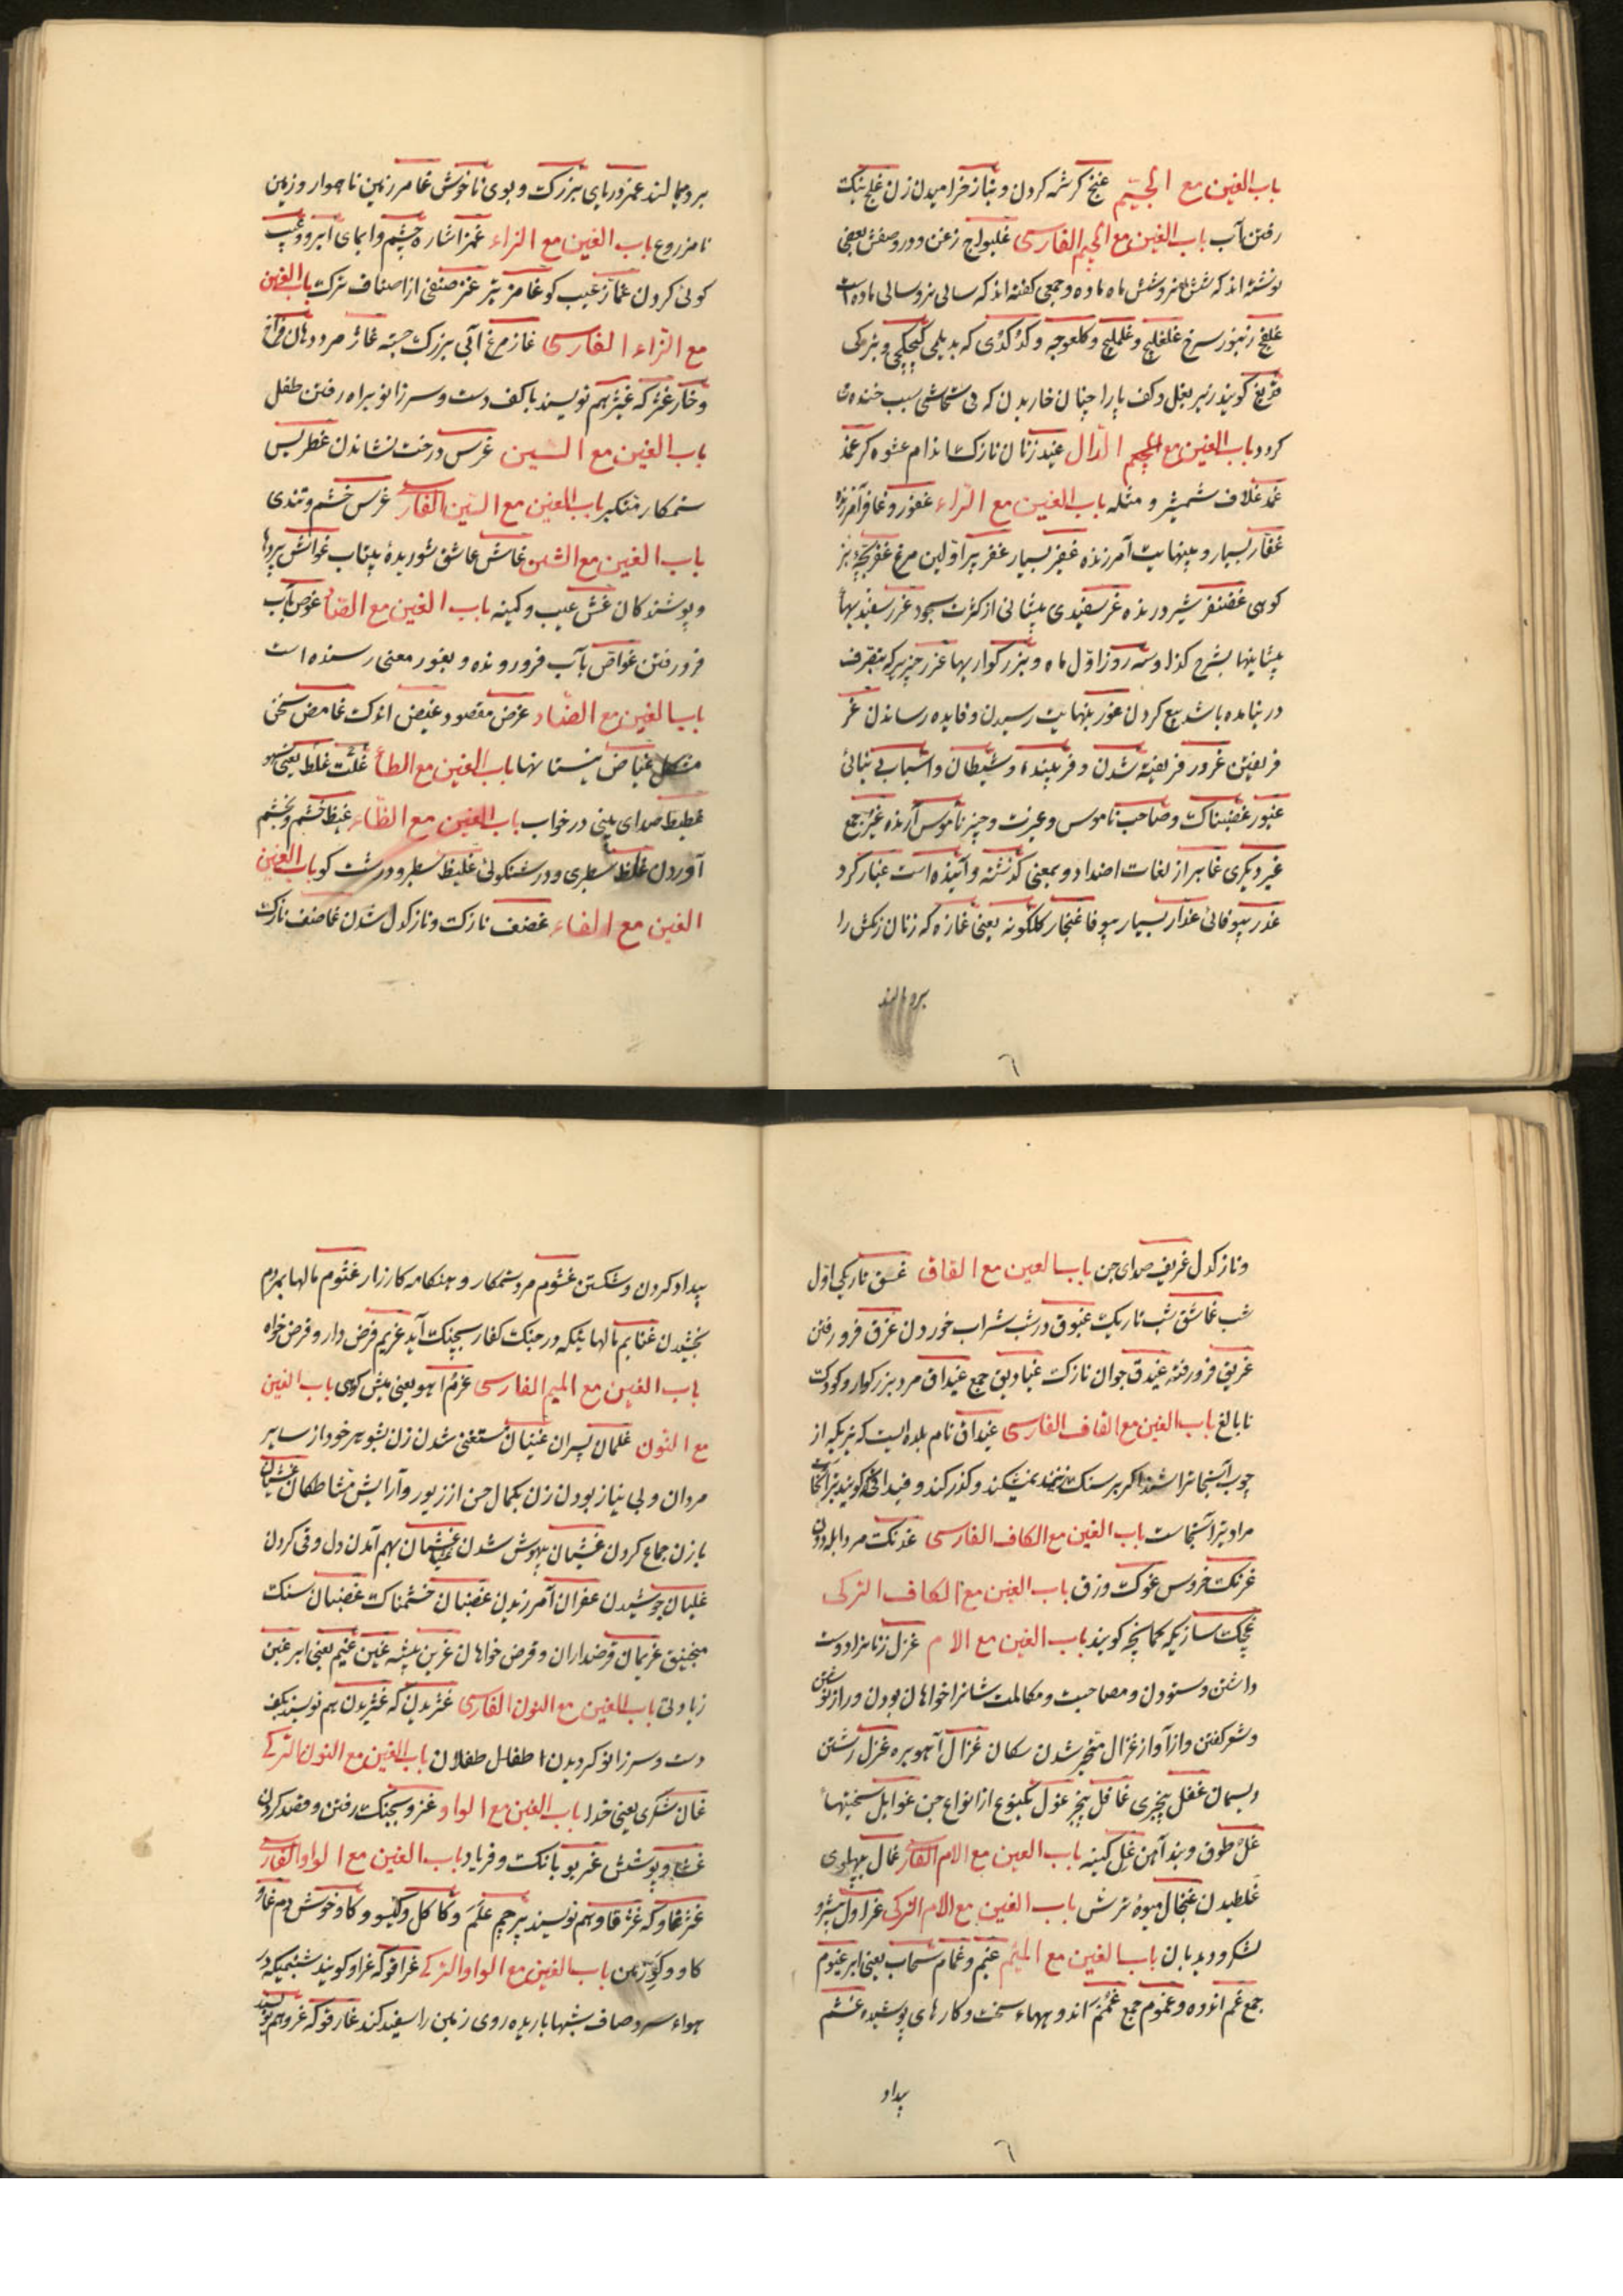 باب الغین مع الجیم غنج کرشمه کردن و بناز خرامیدن زن غلج نیک
رفتن بآب باب الغین مع الجیم الفارسی غلیواج زغن و در وصفش بعضی
نوشته اند که شش ماه نر و شش ماه ماده و جمعی گفته اند که سالی نر و سالی ماده است
غلفج زنبور سرخ غلغلیج و غلملیج و کلغوچه و کدکدی که بدیلمی کیچکیچی و بترکی
گویند زیر بغل و کف پا را چنان خاریدن که بی تحاشی سبب خنده
کردد باب الغین مع الدال غید زنان نازک اندام عشوه کر غمد
غمد غلاف شمشیر و مثله باب الغین مع الراء غفور و غافر آمرزنده
غفار بسیار و بینهایت آمرزنده غفیر بسیار غفر پر اولین مرغ غفر بچه بز
کوهی غضنفر شیر درنده غر سفیدی پیشانی از کثرت سجود غرر سفیدیها
پیشانیها بشرح کذا و سه روز اول ماه و بزرکواریها غرر چیزیکه بتصرف
در نیامده باشد بیع کردن غور بنهایت رسیدن و فایده رساندن غر
فریفتن غرور فریفته شدن و فریبنده و شیطان و اسباب بی بنائی
غیور غضبناک و صاحب ناموس و غیرت و چیز ناموس آرنده غیر جمع
غیر دیکری غابر از لغات اضداد و بمعنی کذشته و آینده است غبار کرد
غدر بیوفائی غدار بسیار بیوفا غنجار کلکونه یعنی غازه که زنان زنکش را
برو مالند
برو مالند غمر دریای بزرک و بوی ناخوش غامر زمین ناهموار و زمین
نامزروع باب الغین مع الزاء غمز اشاره چشم و ایمای ابرو و عیب
کوئی کردن غماز عیب کو غامز نیز غز صنفی از اصناف ترک باب الغین
مع الزاء الفارسی غاز مرغ آبی بزرک جثه غاژ مرد دهان فراخ
و خار غژ که غیژ هم نویسند با کف دست و سر زانو براه رفتن طفل
باب الغین مع السین غرس درخت نشاندن غطریس
ستمکار متکبر باب الغین مع السین الفارسی غرس خشم و تندی
باب الغین مع الشین غاش عاشق شوریده بیتاب غواش پردها
و پوشندکان غش عیب و کینه باب الغین مع الصاد غوص بآب
فرو رفتن غواص بآب فرو رونده و بغور معنی رسنده است
باب الغین مع الضاد غرض مقصود غیض اندک غامض سخن
مشکل غیاض نیستانها باب الغین مع الطاء غلت غلط یعنی سهو
غطیط صدای بینی در خواب باب الغین مع الظاء غیظ خشم و بخشم
آوردن غلظ سطبری و درشتکوئی غلیظ سطبر و درشت کو باب الغین
الغین مع الفاء غضف نازک و نازکدل شدن غاضف نازک
و نازکدل غریف صدای جن باب الغین مع القاف غسق تاریکی اول
شب غاسق شب تاریک غبوق در شب شراب خوردن غرق فرو رفتن
غریق فرو رفته غیدق جوان نازک غیادیق جمع غیداق مرد بزرکوار و کودک
نابالغ باب الغین مع القاف الفارسی غیداق نام بلده ایست که تیریکه از
چوب آنجا تراشند اگر بر سنک زنند نمیشکند و کذر کند و غیداقی کویند تیر آنجا
مراد تیر آنجاست باب الغین مع الکاف الفارسی غدنک مرد ابله و دون
غرنک خروس غوک وزق باب الغین مع الکاف الترکی
غچک سازیکه کمانچه کویند باب الغین مع الام غزل زنانرا دوست
داشتن و ستودن و مصاحبت و مکالمت شانرا خواهان بودن و راز نوشتن
و شعر کفتن و از آواز غزال متحیر شدن سکان غزال آهو بره غزل رشتن
ریسمان غفل بیخبری غافل بیخبر غول یکنوع از انواع جن غوایل سختیها
غل طوق و بند آهن غل کینه باب الغین مع الام الفارسی غال پهلوی
غلطیدن غنجال میوه ترش باب الغین مع الام الترکی غراول پیشرو
لشکر و دیدبان باب الغین مع المیم غیم و غمام سحاب یعنی ابر غیوم
جمع غم اندوه و غموم جمع غمم اندوهها سخت و کارهای پوشیده غشم
بیداد
بیداد کردن و شکستن غشوم مرد ستمکار و هنکامه کارزار غنوم مالها بمردم
بخشیدن غنایم مالهائیکه در جنک کفار بچنک آید غریم قرض دار و قرض خواه
باب الغین مع المیم الفارسی غرم آهو یعنی میش کوهی باب الغین
مع النون غلمان پسران غنیان مستغنی شدن زن بشوهر خود از سایر
مردان و بی نیاز بودن زن بکمال حسن از زیور و آرایش مشاطکان غشیان
با زن جماع کردن غشیان بیهوش شدن غثیان بهم آمدن دل و قی کردن
غلیان جوشیدن غفران آمرزیدن غضبان خشمناک غضبان سنک
منجنیق غریمان قرضداران و قرض خواهان غرین بیشه غین غیم یعنی ابر غبن
زیادتی باب الغین مع النون الفارسی غژیدن که غیژیدن هم نویسند بکف
دست و سر زانو کردیدن اطفال طفلان باب الغین مع النون الترکی
غان تنکری یعنی خدا باب الغین مع الواو غزو بجنک رفتن و قصد کردن
غشاوه پوشش غریو بانک و فریاد باب الغین مع الواو الفارسی
غژغاو که غژقاو هم نویسند پرچم علم و کاکل و کیسو و کاو خوش دم غاو
کاو و کو زمین باب الغین مع الواو الترکی غراقو که غراو کویند شبنمیکه در
هواء سرد صاف شبها باریده روی زمین را سفید کند غارقو که غرو هم نویسند